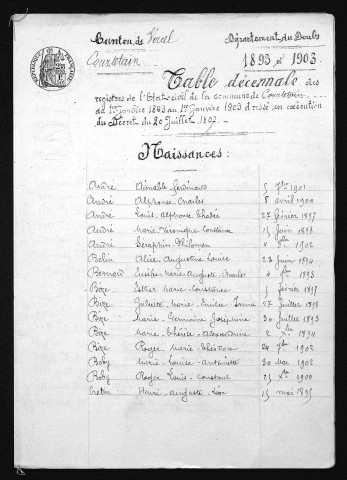 Canton de Vercel
Département du Doubs
Courtetain
1893 à 1903
Table décennale des
registres de l'Etat-civil de la commune de Courtetain
du 1er janvier 1893 au 1er janvier 1903 dressé en exécution
du Décret du 20 Juillet 1807.
Naissances :
André Aimable Ferdinand 5 7bre 1901
André Alphonse Charles 8 avril 1900
André Louis Alphonse 27 février 1897
André Marie Véronique Constance 15 Juin 1898
André Séraphin Philomen 1902
Bobin Alice Augustine Louise 23 Juin 1894
Bernard Emilie Marie Auguste Charles 1893
Bèze Esther Marie Constance 1 février 1897
Bèze Juliette Marie Emilie 27 Juillet 1898
Bèze Marie Germaine Joséphine 30 Juillet 1893
Bèze Marie Thérèse Alexandrine 2 Xbre 1894
Bèze Roger Marie 24 7bre 1902
Boby Marie Louise Antoinette 30 Mai 1902
Boby Roger Louis Constant 25 Xbre 1900
Henri Auguste Léon 15 mai 1895